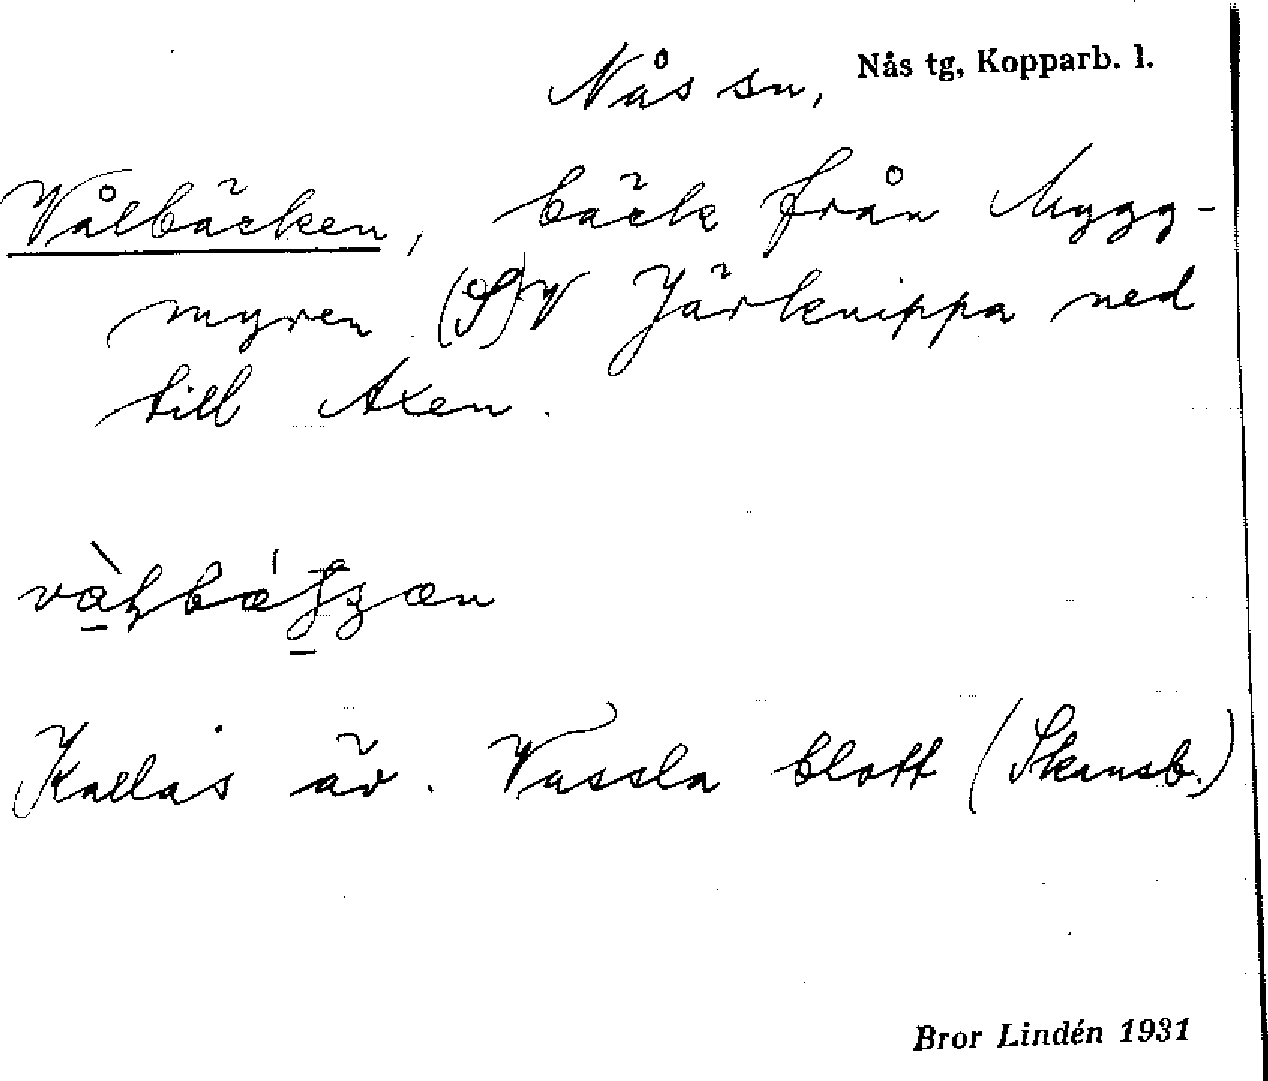 Nås sn, Nås tg, Kopparb. l.
Vålbäcken, bäck från Mygg-
myren (S)V Järknippa ned
till Axen.
Kallas äv. Vassla blott (Skansb.)
Bror Lindén 1931